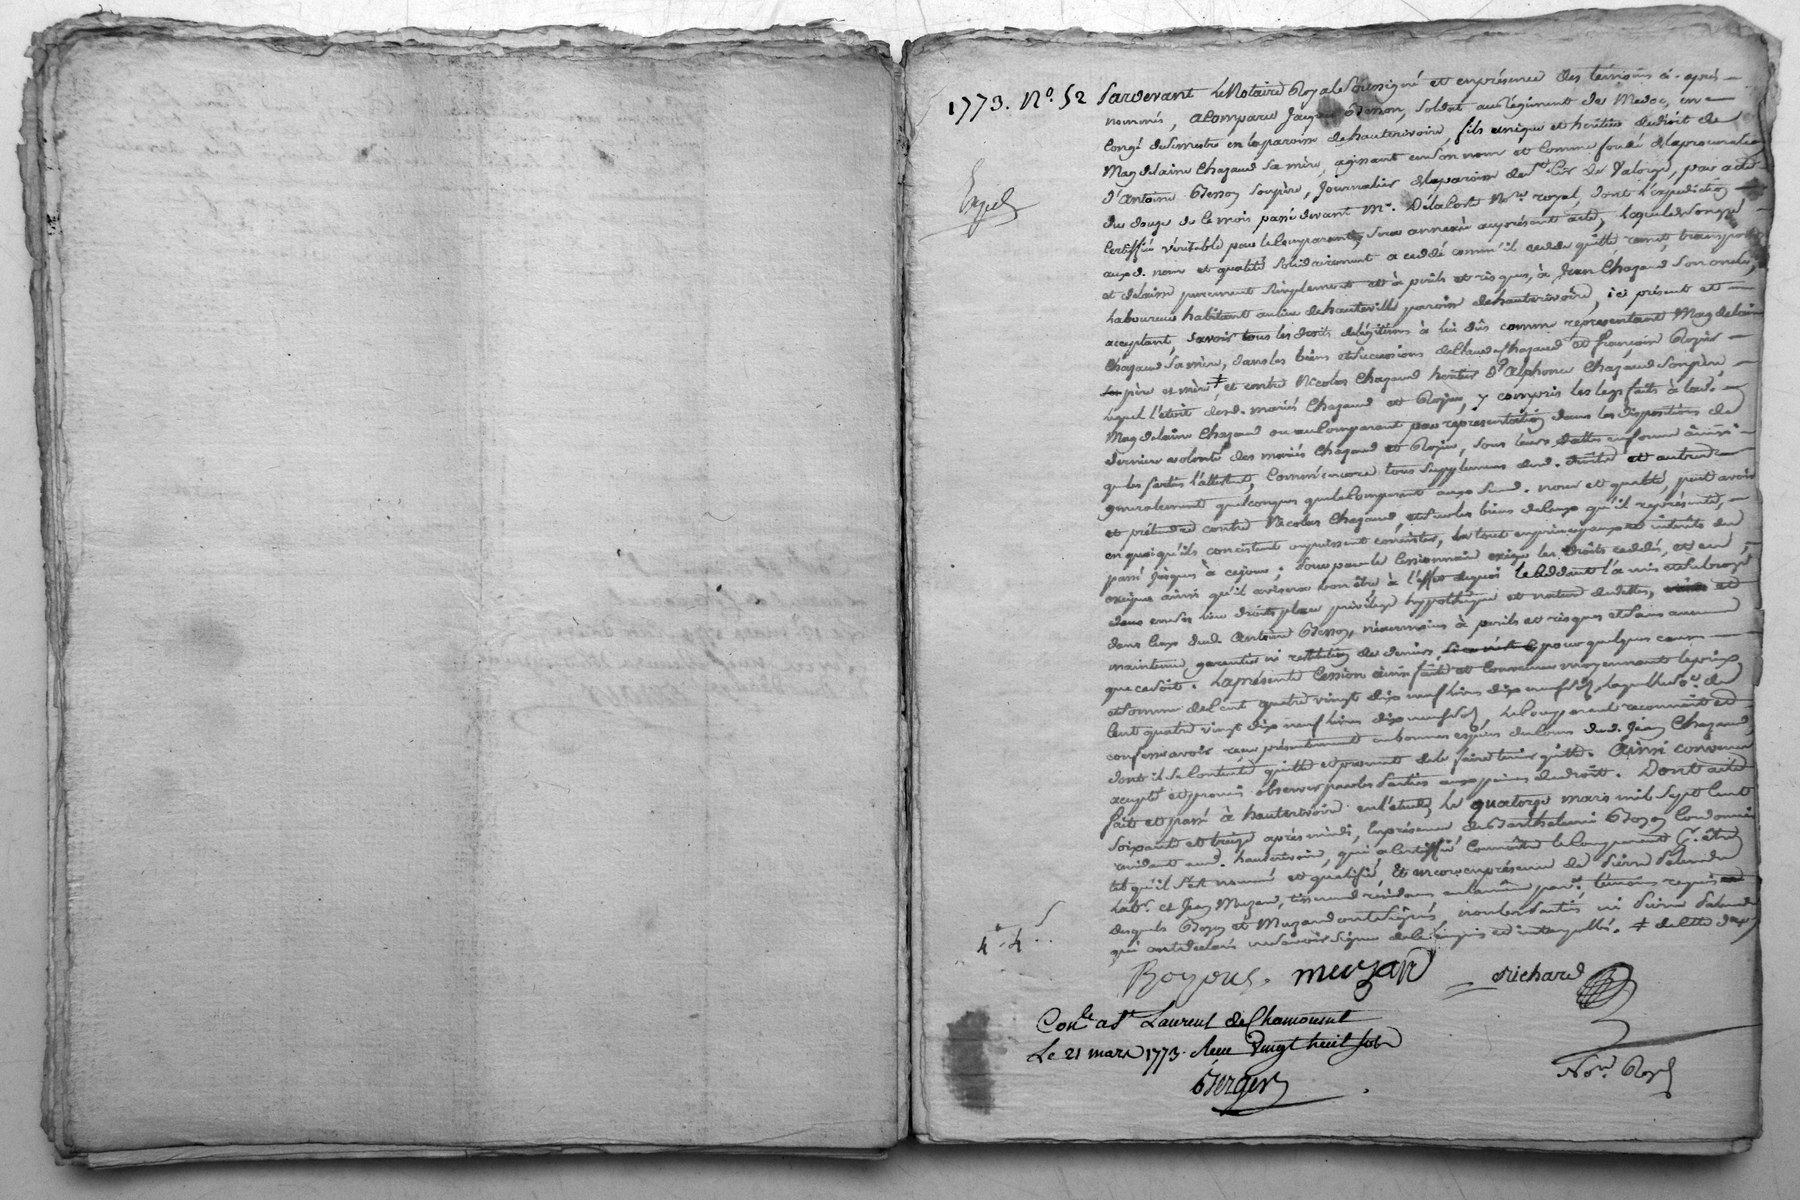 1773. N.º 52 Pardevant Le Notaire Royal Soussigné et en présence des témoins ci-après
nommés, a Comparu Jacques Besson, Soldat au Régiment de Medoc, en
Congé de Semestre en la paroisse de hauterivoire, fils unique et héritier de droit de
Magdelaine Chazaud Sa mère, agissant en Son nom et Comme fondé de la procuration
Exped
d'Antoine Besson Son père, Journalier de la paroisse de St. Cir de Valorge, par acte
du douze de Ce mois passé devant Mr. Délacoste Nre. royal, dont l'expédition
Certiffiée véritable par le Comparant, Sera annexée au présent acte, Lequel de Son gré
auxd. nom et qualité Solidairement a cédé comm'il cede quitte remet, transporte
et délaisse purement Simplement et à périls et risques, à Jean Chazaud Son oncle,
Laboureur habitant au lieu de hauteville paroisse de hauterivoire, ici présent et
acceptant, Savoir tous les droits de légitimes à lui dûs comme représentant Magdelaine
Chazaud Sa mère, dans les biens et Successions de Chazaud et françoise Royer
père et mère ‡ et contre Nicolas Chazaud heritier d'Alphonse Chazaud Son père,
lequel l'étoit desd. mariés Chazaud et Royer, y compris les legs faits à lad.
Magdelaine Chazaud ou au Comparant par représentation dans les dispositions de
derniere volonté des mariés Chazaud et Royer, Sous leurs dattes en forme ainsi
que les parties l'attestent, Comm'encore tous Supplemens dud. droits et autres
généralement quelconques que le Comparant aux Susd. noms et qualité, peut avoir
et prétendre contre Nicolas Chazaud, et Sur les biens de Ceux qu'il représente,
en quoi qu'ils consistent ou puissent consister, le tout en principaux et intérêts du
passé jusques à ce jour; Pour par le Cessionnaire exiger les droits cédés, et en
exiger ainsi qu'il avisera bon être à l'effet de quoi le Cedant l'a mis et Subrogé
dans en Ses lieu droits place privilège hypothèque et nature de dettes, et
dans Ceux dud. Antoine Besson, néanmoins à périls et risques et Sans aucune
maintenue, garentie ni restitution de deniers, pour quelque cause
que ce Soit. La présente Cession ainsi faite et Convenue moyennant le prix
et Somme de Cent quatre vingt dix neuf Livres dix neuf Sols, Laquelle Se. de
Cent quatre vingt dix neuf Livres dix neuf Sols, Le Comparant reconnoit et
confesse avoir reçu présentement en bonnes espèces de Cours dud. Jean Chazaud,
dont il Se Contente quitte et promet de le faire tenir quitte. Ainsi convenu
accepté et promis observer par les Parties aux peines de droit. Dont acte
fait et passé à hauterivoire en l'étude, Le quatorze mars mil Sept Cent
Soixante et treize après midi, En présence de Barthelemi Boyou Cordonnier
résidant aud. hauterivoire, qui a Certiffié Connoître le Comparant &. être
tel qu'il S'est nommé et qualifié, Et encore en présence de Pierre
Labr. et Jean Muzard, tisserand résidans en la même parse., témoins requis
desquels Boyou et Muzard ont Signés, non les Parties ni Pierre
4#. 4s
qui ont déclarés ne Savoir Signer de Ce enquis et interpellés.
Boyous. muzard richard
Con.le a St. Laurent de Chamousset
Le 21 mars 1773. Reçu Vingt huit Sols
Berger
Nore. Royl